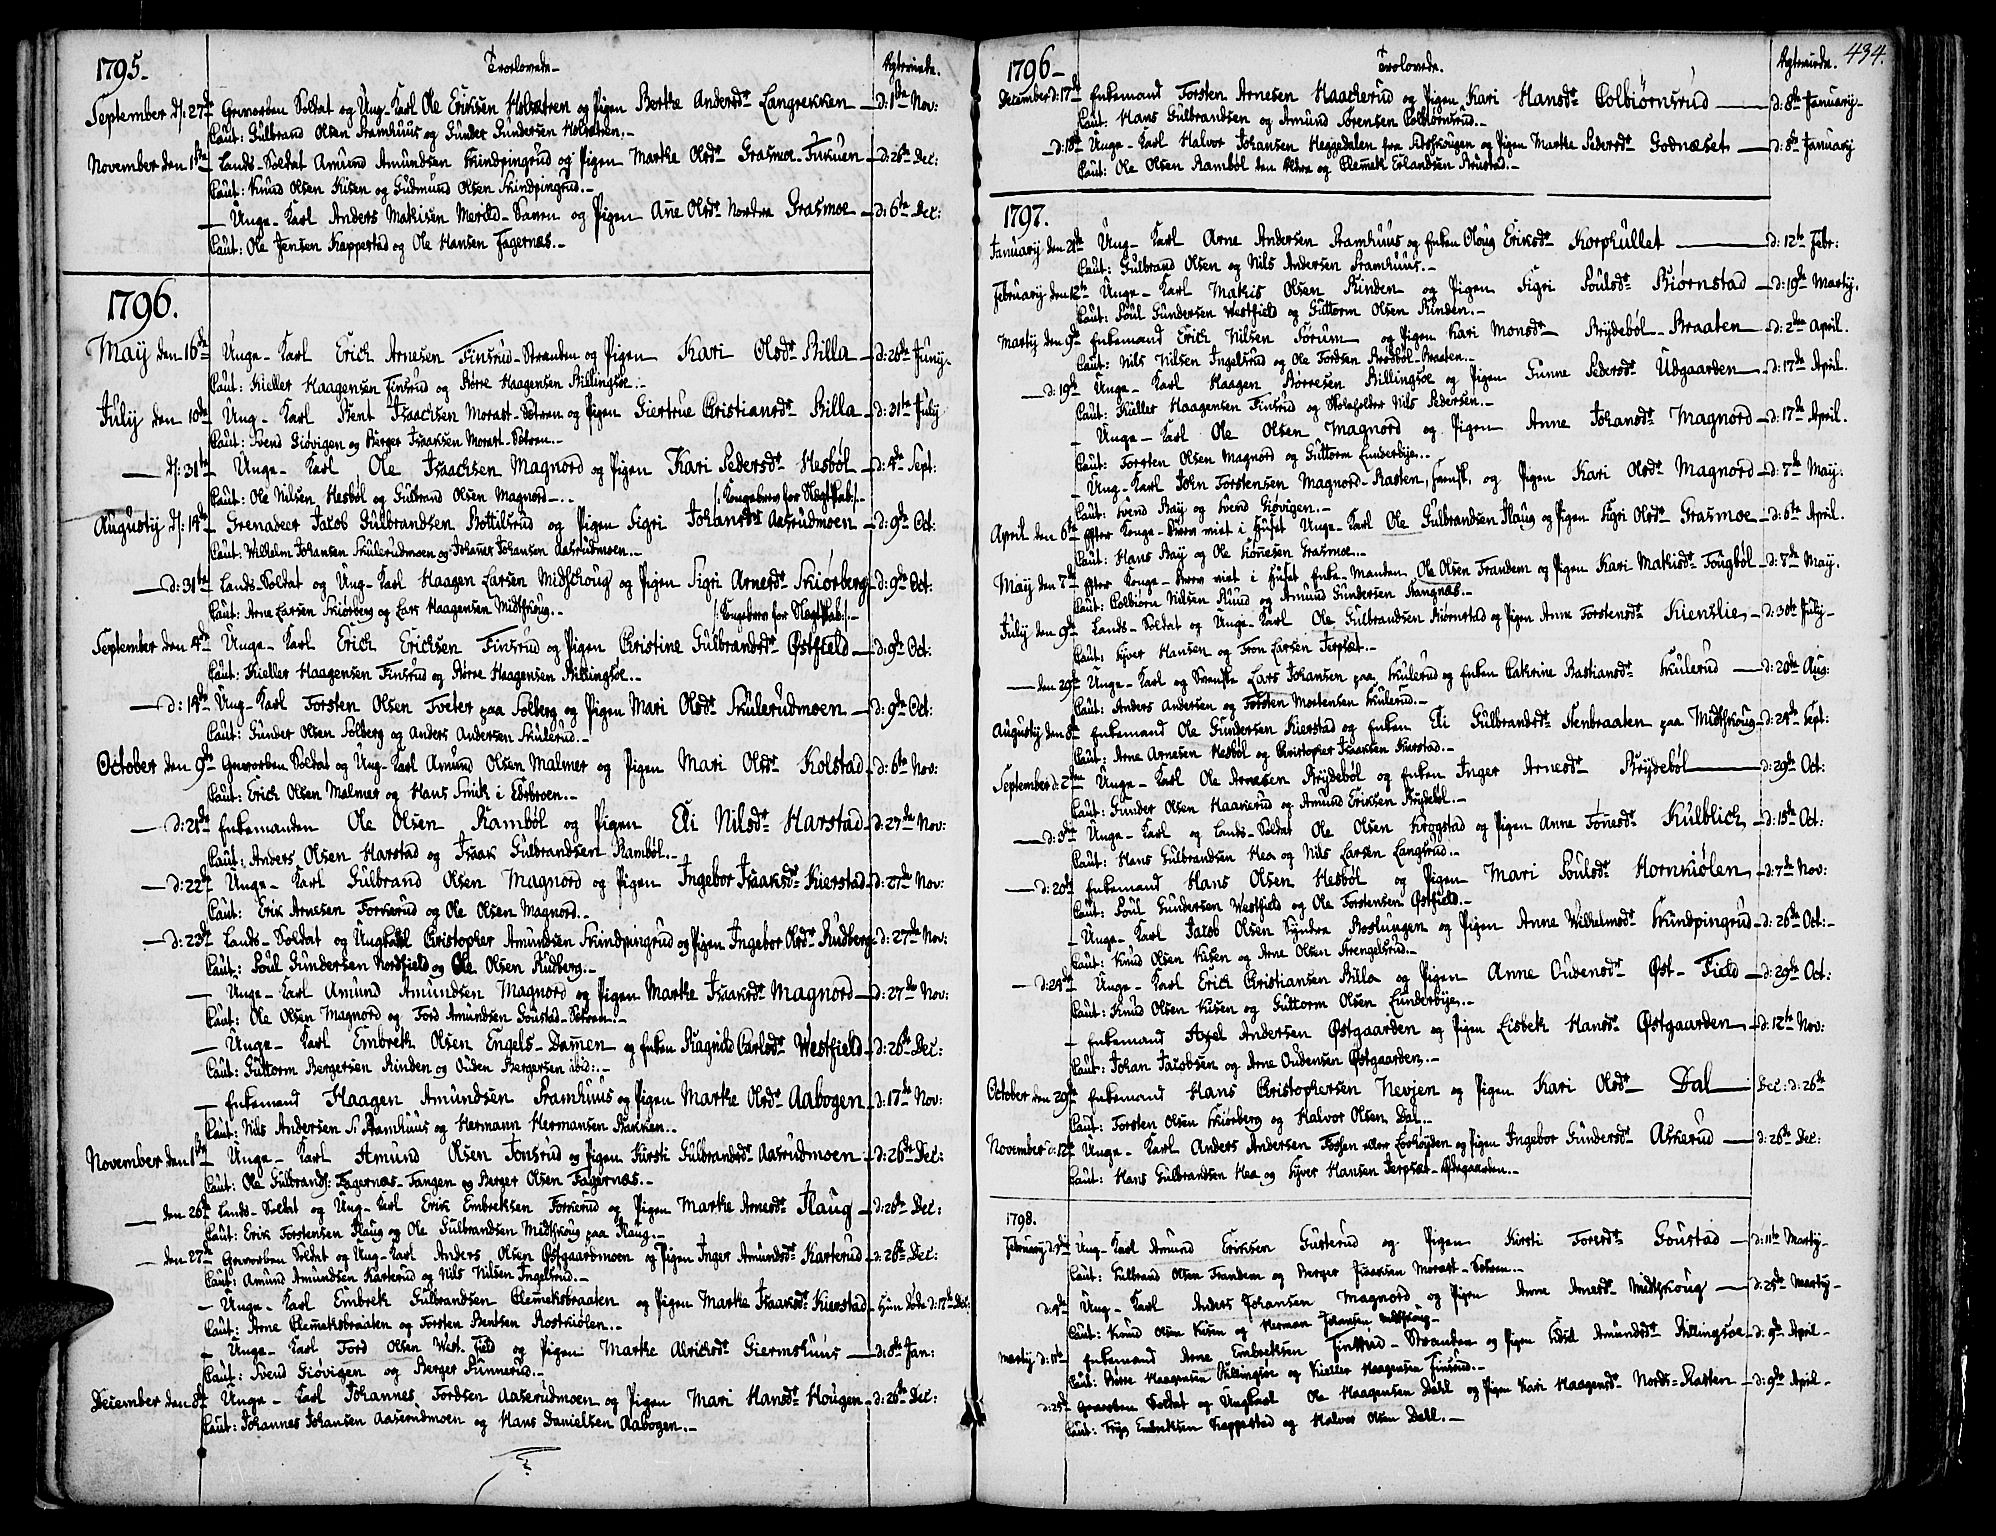 1795.
Troelovede.
Ægteviede.
September d/: 27de Gevorben Soldat og Ung-Karl Ole Eriksen Holsætren og Pigen Berthe Andersdtr Langrekken d: 1ste Nov:
Caut: Gulbrand Olsen Framhuus og Gunder Gundersen Holsætren.
November den 1ste Lands-Soldat Amund Amundsen Skindpingrud og Pigen Marthe Olsdtr Grasmoe d: 26de Dec:
Caut: Knud Olsen Kisen og Gudmund Olsen Skindpingrud.
Unge-Karl Anders Mathisen og Pigen Ane Olsdtr Nordre Grasmoe d: 6te Dec:
Caut: Ole Jensen Kappestad og Ole Hansen Fagernæs.
1796.
May den 16de Unge-Karl Erich Arnesen Finsrud-Stranden og Pigen Kari Olsdtr Billa d: 26de Juny.
Caut: Kieller Haagensen Finsrud og Børre Haagensen Billingsoe.
July den 10de Ung-Karl Bent Isaachsen Morast-Sætren og Pigen Giertrue Christiansdtr Billa d: 31te July
Caut: Svend Giøvigen og Berger Isaaksen Morast-Sætren.
d/: 31te Unge-Karl Ole Isaachsen Magnord og Pigen Kari Pedersdtr Hesbøl d: 4de Sept:
Caut: Ole Nilsen Hesbøl og Gulbrand Olsen Magnord.
/: Kongebrev for Slegtskab :/
Augusty d/: 14de Grenadeer Jacob Gulbrandsen Bottilsrud og Pigen Sigri Johansdtr Aasrudmoen d: 9de Oct:
Caut: Wilhelm Johansen Skulerudmoen og Johannes Johansen Aasrudmoen.
d: 31te Lands-Soldat og Ung-Karl Haagen Larsen Midtskoug og Pigen Sigri Arnesdtr Skiørberg d: 9de Oct:
Caut: Arne Larsen Skiørberg og Lars Haagensen Midtskoug.
/: Kongebrev for Slegtskab :/
September den 4de Unge-Karl Erich Erichsen Finsrud og Pigen Christine Gulbrandsdtr Østfield d: 9de Oct:
Caut: Kieller Haagensen Finsrud og Børre Haagensen Billingsoe.
d: 14de Ung-Karl Torsten Olsen Tveter paa Solberg og Pigen Mari Olsdtr Skulerudmoen d: 9de Oct:
Caut: Gunder Olsen Solberg og Anders Andersen Skulerud.
October den 9de Gevorben Soldat og Ung-Karl Amund Olsen Malmer og Pigen Mari Olsdtr Kolstad d: 6te Nov:
Caut: Erich Olsen Malmer og Hans Smik i Edsbroen.
d: 21de Enkemanden Ole Olsen Rambøl og Pigen Eli Nilsdtr Harstad d: 27de Nov:
Caut: Anders Olsen Harstad og Isaak Gulbrandsen Rambøl.
d: 22de Unge-Karl Gulbrand Olsen Magnord og Pigen Ingebor Isaaksdtr Kierstad d: 27de Nov:
Caut: Erik Arnesen Torkerud og Ole Olsen Magnord.
d: 23de Lands-Soldat og Ungkarl Christopher Amundsen Skindpingrud og Pigen Ingebor Olsdtr Rudberg d: 27de Nov:
Caut: Poul Gundersen Nordfield og Ole Olsen Rudberg.
Unge-Karl Amund Amundsen Magnord og Pigen Marthe Isaaksdtr Magnord d: 27de Nov:
Caut: Ole Olsen Magnord og Tord Amundsen Goustad-Sætren.
Unge-Karl Embrek Olsen Engels-Damen og Enken Ragnild Carlsdtr Westfield d: 26de Dec:
Caut: Guttorm Bergersen Rinden og Ouden Bergersen ibid:
Enkemand Haagen Amundsen Framhuus og Pigen Marthe Olsdtr Aabogen d: 17de Nov:
Caut: Nils Andersen Framhuus og Hermann Hermansen Bakken.
November den 1ste Unge-Karl Amund Olsen Tonsrud og Pigen Kirsti Gulbrandsdtr Aasrudmoen d: 26de Dec:
Caut: Ole Gulbrands: Fagernæs-Tangen og Berger Olsen Fagernæs.
den 26de Lands-Soldat og Ung-Karl Erik Embreksen Torkerud og Pigen Marthe Arnesdtr Haug d: 26de Dec:
Caut: Erik Torstensen Haug og Ole Gulbrandsen Midtskoug paa Haug.
den 27de Gevorben Soldat og Ung-Karl Anders Olsen Østgaardmoen og Pigen Inger Amundsdtr Karterud d: 26de Dec:
Caut: Amund Amundsen Karterud og Nils Nilsen Ingelsrud.
Unge-Karl Embrek Gulbrandsen Clemeksbraaten og Pigen Marthe Isaaksdtr Kierstad Hun døde d: 17de Dec:
Caut: Arne Clemeksbraaten og Torsten Bentsen Rostkiølen.
Unge-Karl Tord Olsen West-Field og Pigen Marthe Alrichsdtr Giermshuus d: 8de Jan:
Caut: Svend Giøvigen og Berger Sunnerud.
December den 8de Unge-Karl Johannes Tordsen Aaserudmoen og Pigen Mari Hansdtr Hougen d: 26de Dec:
Caut: Johannes Johansen Aaserudmoen og Hans Danielsen Aabogen.
434.
1796
Troelovede.
Ægteviede.
December d: 17de Enkemand Torsten Arnesen Haacherud og Pigen Kari Hansdtr Colbiørnsrud d: 8de January
Caut: Hans Gulbrandsen og Amund Sørensen Colbiørnsrud.
d: 18de Unge-Karl Halvor Johansen Heggedalen fra og Pigen Marthe Pedersdtr Godnæset d: 8de January
Caut: Ole Olsen Rambøl den Ældre og Clemek Erlandsen Brustad.
1797.
January den 21de Ung-Karl Arne Andersen Framhuus og Enken Oloug Eriksdtr Korphullet d: 12te Febr:
Caut: Gulbrand Olsen og Nils Andersen Framhuus.
February den 12te Unge-Karl Mathis Olsen Rinden og Pigen Sigri Poulsdtr Biørnstad d: 19de Marty.
Caut: Poul Gundersen Westfield og Guttorm Olsen Rinden.
Marty den 9de Enkemand Erich Nilsen Forum og Pigen Kari Monsdtr Brydebøl-Braaten d: 2den April.
Caut: Nils Nilsen Ingelsrud og Ole Tordsen Brødbøl-Braaten.
d: 19de Unge-Karl Haagen Børresen Billingsoe og Pigen Gunne Pedersdtr Udgaarden d: 17de April.
Caut: Kieller Haagensen Finsrud og Skoleholder Nils Pedersen.
Unge-Karl Ole Olsen Magnord og Pigen Anne Johansdtr Magnord d: 17de April.
Caut: Torsten Olsen Magnord og Guttorm Lunderbye.
Ung-Karl John Torstensen Magnord-Kasten, og Pigen Kari Olsdtr Magnord d: 7de May:
Caut: Svend Bay og Svend Giøvigen.
April den 6te Efter Konge-Brev viet i Huset Unge-Karl Ole Gulbrandsen Haug og Pigen Sigri Olsdtr Grasmoe d: 6te April.
Caut: Hans Bay og Ole Grasmoe.
May den 7de Efter Konge-Brev viet i Huset Enke-Manden Ole Olsen Frandem og Pigen Kari Mathisdtr Tougbøl d: 7de May.
Caut: Colbiørn Nilsen Ruud og Amund Gundersen Stangnæs.
July den 9de Lands-Soldat og Unge-Karl Ole Gulbrandsen Biørnstad og Pigen Anne Torstensdtr Kienslie d: 30te July
Caut: Syver Hansen og Tron Larsen Jerpset.
den 29de Unge-Karl og Svenske Lars Johansen paa Skulerud og Enken Cathrine Bastiansdtr Skulerud d: 20de Aug:
Caut: Anders Andersen og Torsten Mortensen Skulerud.
Augusty den 8de Enkemand Ole Gundersen Kierstad og Enken Eli Gulbrandsdtr Stenbraaten paa Midtskoug d: 24de Sept:
Caut: Arne Arnesen Hesbøl og Christopher Isaaksen Kierstad.
September d: 2den Unge-Karl Ole Arnesen Brydebøl og Enken Inger Arnesdtr Brydebøl d: 29de Oct:
Caut: Gunder Olsen Haakerud og Amund Eriksen Brydebøl.
d: 3de Unge-Karl og Lands-Soldat Ole Olsen Krogstad og Pigen Anne Tønesdtr Kulblich d: 15de Oct:
Caut: Hans Gulbrandsen Hea og Nils Larsen Langsrud.
d: 20de Enkemand Hans Olsen Hesbøl og Pigen Mari Poulsdtr Hornkiølen d: 7de Nov:
Caut: Poul Gundersen Westfield og Ole Torstensen Østfield.
Unge-Karl Jacob Olsen Syndre Roslungen og Pigen Anne Wilhelmsdtr Skindpingrud d: 26de Oct:
Caut: Knud Olsen Kisen og Arne Olsen Strengelsrud.
d: 24de Unge-Karl Erich Christiansen Billa og Pigen Anne Oudensdtr Øst-Field d: 29de Oct:
Caut: Knud Olsen Kisen og Guttorm Olsen Lunderbye.
Enkemand Axel Andersen Østgaarden og Pigen Lisbek Hansdtr Østgaarden d: 12te Nov:
Caut: Johan Jacobsen og Arne Oudensen Østgaarden.
October den 29de Enkemand Hans Christophersen Nevjen og Pigen Kari Olsdtr Dal Dec: d: 26de
Caut: Torsten Olsen Skiørberg og Halvor Olsen Dal.
November d: 12te Unge-Karl Anders Andersen Fossen eller og Pigen Ingebor Gundersdtr Askerud d: 26de Dec:
Caut: Hans Gulbrandsen Hea og Syver Hansen Jerpset-Ødegaarden.
1798.
February d: 2den Ung-Karl Amund Eriksen Gusterud og Pigen Kirsti Toresdtr Goustad d: 11te Marty
Caut: Gulbrand Olsen Frandem og Berger Isaaksen Morast-Sætren.
d: 4de Ung-Karl Anders Johansen Magnord og Pigen Anne Arnesdtr Midtskoug d: 25de Marty
Caut: Knud Olsen Kisen og Herman Johansen Midtskoug
Marty d: 11te Enkemand Arne Embreksen Finsrud-Stranden og Pigen Sidsel Amundsdtr Billingsoe d: 9de April
Caut: Børre Haagensen Billingsoe og Kieller Haagensen Finsrud.
d: 25de Gevorben Soldat og Ungkarl Ole Haagensen Dahl og Pigen Kari Haagensdtr Nords-Kasten d: 9de April
Caut: Embreksen Kappestad og Halvor Olsen Dahl.